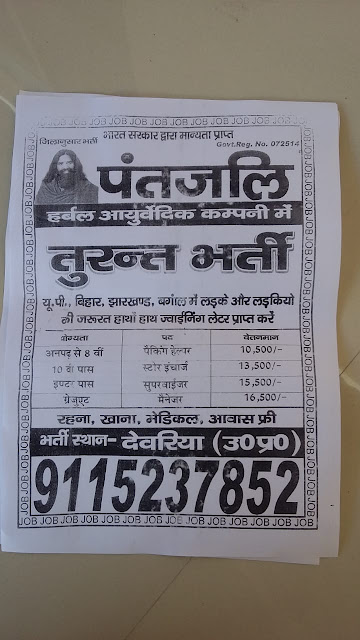 JOB JOB JOB JOB JOB JOB JOB JOB JOB JOB JOB JOB JOB
भारत सरकार द्वारा मान्यता प्राप्त
जिलानुसार भर्ती
Govt.Reg. No. 072514
पंतजलि
हर्बल आयुर्वेदिक कम्पनी में
तुरन्त भर्ती
यू.पी., बिहार, झारखण्ड, बंगाल में लड़के और लड़कियो
की जरूरत हाथों हाथ ज्वाईनिंग लेटर प्राप्त करें
योग्यता पद वेतनमान
अनपढ़ से 8 वीं पैकिंग हेल्पर 10,500/-
10 वीं पास स्टोर इंचार्ज 13,500/-
इण्टर पास सुपरवाईजर 15,500/-
ग्रेजुएट मैनेजर 16,500/-
रहना, खाना, मेडिकल, आवास फ्री
भर्ती स्थान- देवरिया (उ0प्र0)
9115237852
JOB JOB JOB JOB JOB JOB JOB JOB JOB JOB JOB JOB JOB